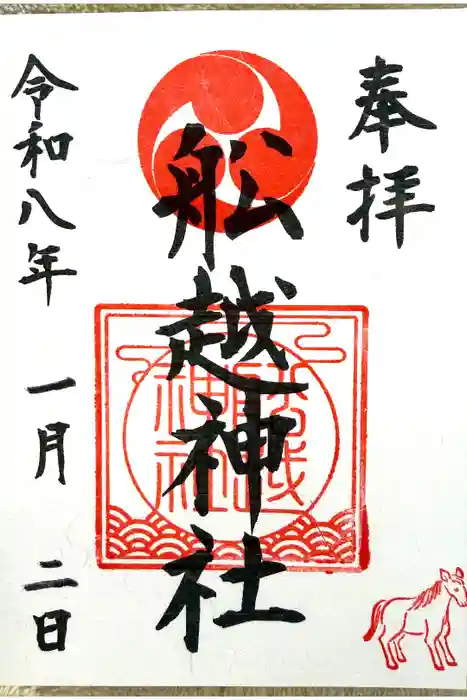 奉拝
舩越神社
舩越
神社
令和八年 一月 二日